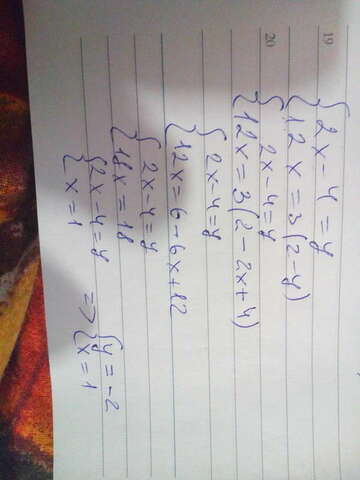 19
20
{ 2x - 4 = y
{ 12x = 3(2 - y)
{ 2x - 4 = y
{ 12x = 3(2 - 2x + 4)
{ 2x - 4 = y
{ 12x = 6 - 6x + 12
{ 2x - 4 = y
{ 18x = 18
{ 2x - 4 = y => { y = -2
{ x = 1 { x = 1